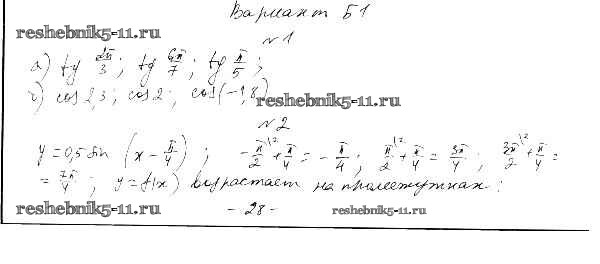 Вариант Б1
reshebnik5-11.ru
№1
а) tg 2π/3; tg 6π/7; tg π/5;
г) cos 2,3; cos 2; cos(-1,8)
reshebnik5-11.ru
№2
y = 0,5 sin (x - π/4); -π/2 |² + π/4 = -π/4; π/2 |² + π/4 = 3π/4; 3π/2 |² + π/4 =
= 7π/4; y = f(x) возрастает на промежутках:
reshebnik5-11.ru - 28 - reshebnik5-11.ru